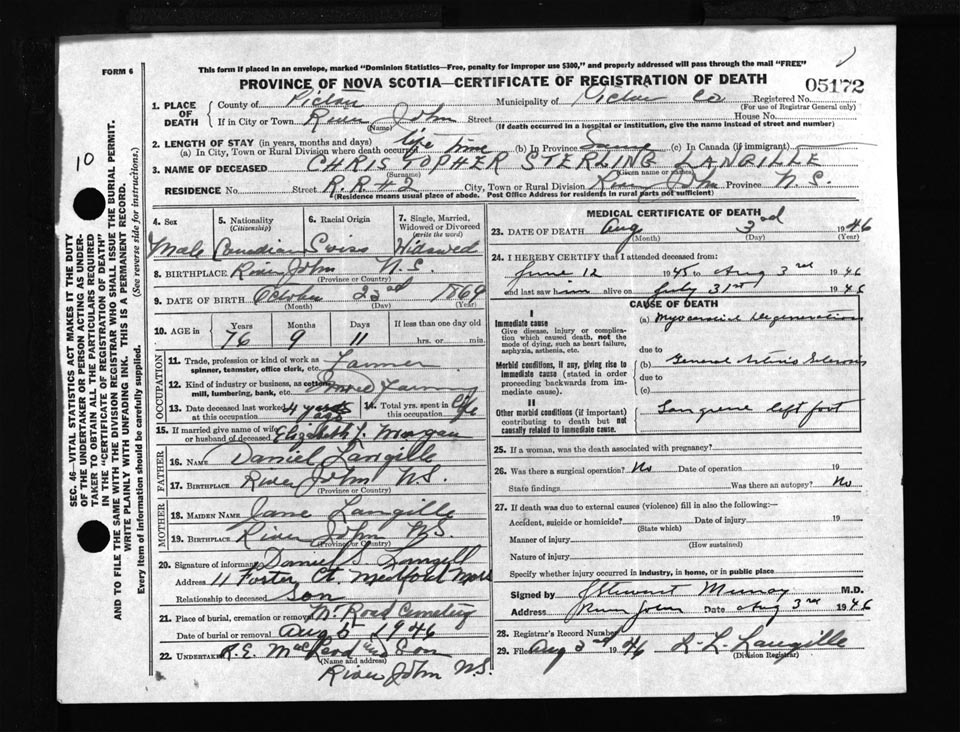 FORM 6
This form if placed in an envelope, marked "Dominion Statistics—Free, penalty for improper use $300," and properly addressed will pass through the mail "FREE"
PROVINCE OF NOVA SCOTIA—CERTIFICATE OF REGISTRATION OF DEATH
05172
1. PLACE OF DEATH
County of Pictou Municipality of Pictou Co Registered No.
(For use of Registrar General only)
If in City or Town River John Street House No.
(Name) (If death occurred in a hospital or institution, give the name instead of street and number)
2. LENGTH OF STAY (in years, months and days)
(a) In City, Town or Rural Division where death occurred life time (b) In Province Same (c) In Canada (if immigrant)
3. NAME OF DECEASED CHRISTOPHER STERLING LANGILLE
(Surname) (Given name or names)
RESIDENCE No. Street R.R #2 City, Town or Rural Division River John Province N.S.
(Residence means usual place of abode. Post Office Address for residents in rural parts not sufficient)
10
SEC. 46—VITAL STATISTICS ACT MAKES IT THE DUTY
OF THE UNDERTAKER OR PERSON ACTING AS UNDER-
TAKER TO OBTAIN ALL THE PARTICULARS REQUIRED
IN THE "CERTIFICATE OF REGISTRATION OF DEATH"
AND TO FILE THE SAME WITH THE DIVISION REGISTRAR WHO SHALL ISSUE THE BURIAL PERMIT.
WRITE PLAINLY WITH UNFADING INK. THIS IS A PERMANENT RECORD.
Every item of information should be carefully supplied. (See reverse side for instructions.)
4. Sex
Male
5. Nationality
(Citizenship)
Canadian
6. Racial Origin
Swiss
7. Single, Married,
Widowed or Divorced
(write the word)
Widowed
8. BIRTHPLACE River John N.S.
(Province or Country)
9. DATE OF BIRTH October 23rd 1869
(Month) (Day) (Year)
10. AGE in Years Months Days If less than one day old
76 9 11 hrs. or min.
OCCUPATION
11. Trade, profession or kind of work as Farmer
spinner, teamster, office clerk, etc.
12. Kind of industry or business, as cotton Farming
mill, lumbering, bank, etc.
13. Date deceased last worked 4 years ago
at this occupation
14. Total yrs. spent in Life
this occupation
15. If married give name of wife Elizabeth J. Morgan
or husband of deceased
FATHER
16. NAME Daniel Langille
17. BIRTHPLACE River John N.S.
(Province or Country)
MOTHER
18. MAIDEN NAME Jane Langille
19. BIRTHPLACE River John N.S.
(Province or Country)
20. Signature of informant Daniel S. Langill
Address 11 Foster Ct. Medford Mass
Relationship to deceased Son
21. Place of burial, cremation or removal Road Cemetery
Date of burial or removal Aug 5 1946
22. UNDERTAKER R.E. MacLeod and Son
(Name and address)
River John N.S.
MEDICAL CERTIFICATE OF DEATH
23. DATE OF DEATH Aug 3rd 1946
(Month) (Day) (Year)
24. I HEREBY CERTIFY that I attended deceased from:
June 12 1945 to Aug 3rd 1946
and last saw him alive on July 31st 1946
CAUSE OF DEATH
I
Immediate cause
Give disease, injury or complica-
tion which caused death, not the
mode of dying, such as heart failure,
asphyxia, asthenia, etc.
(a) Myocardial Degeneration
due to
Morbid conditions, if any, giving rise to
immediate cause (stated in order
proceeding backwards from im-
mediate cause).
(b) General Arterio Sclerosis
due to
(c)
II
Other morbid conditions (if important)
contributing to death but not
causally related to immediate cause.
Gangrene left foot
25. If a woman, was the death associated with pregnancy?
26. Was there a surgical operation? No Date of operation 19
State findings Was there an autopsy? No
27. If death was due to external causes (violence) fill in also the following:—
Accident, suicide or homicide? Date of injury 19
(State which)
Manner of injury
(How sustained)
Nature of injury
Specify whether injury occurred in industry, in home, or in public place
Signed by J Stewart Murray M.D.
Address River John Date Aug 3rd 1946
28. Registrar's Record Number
29. Filed Aug 3rd 1946 L. L. Langille
(Division Registrar)